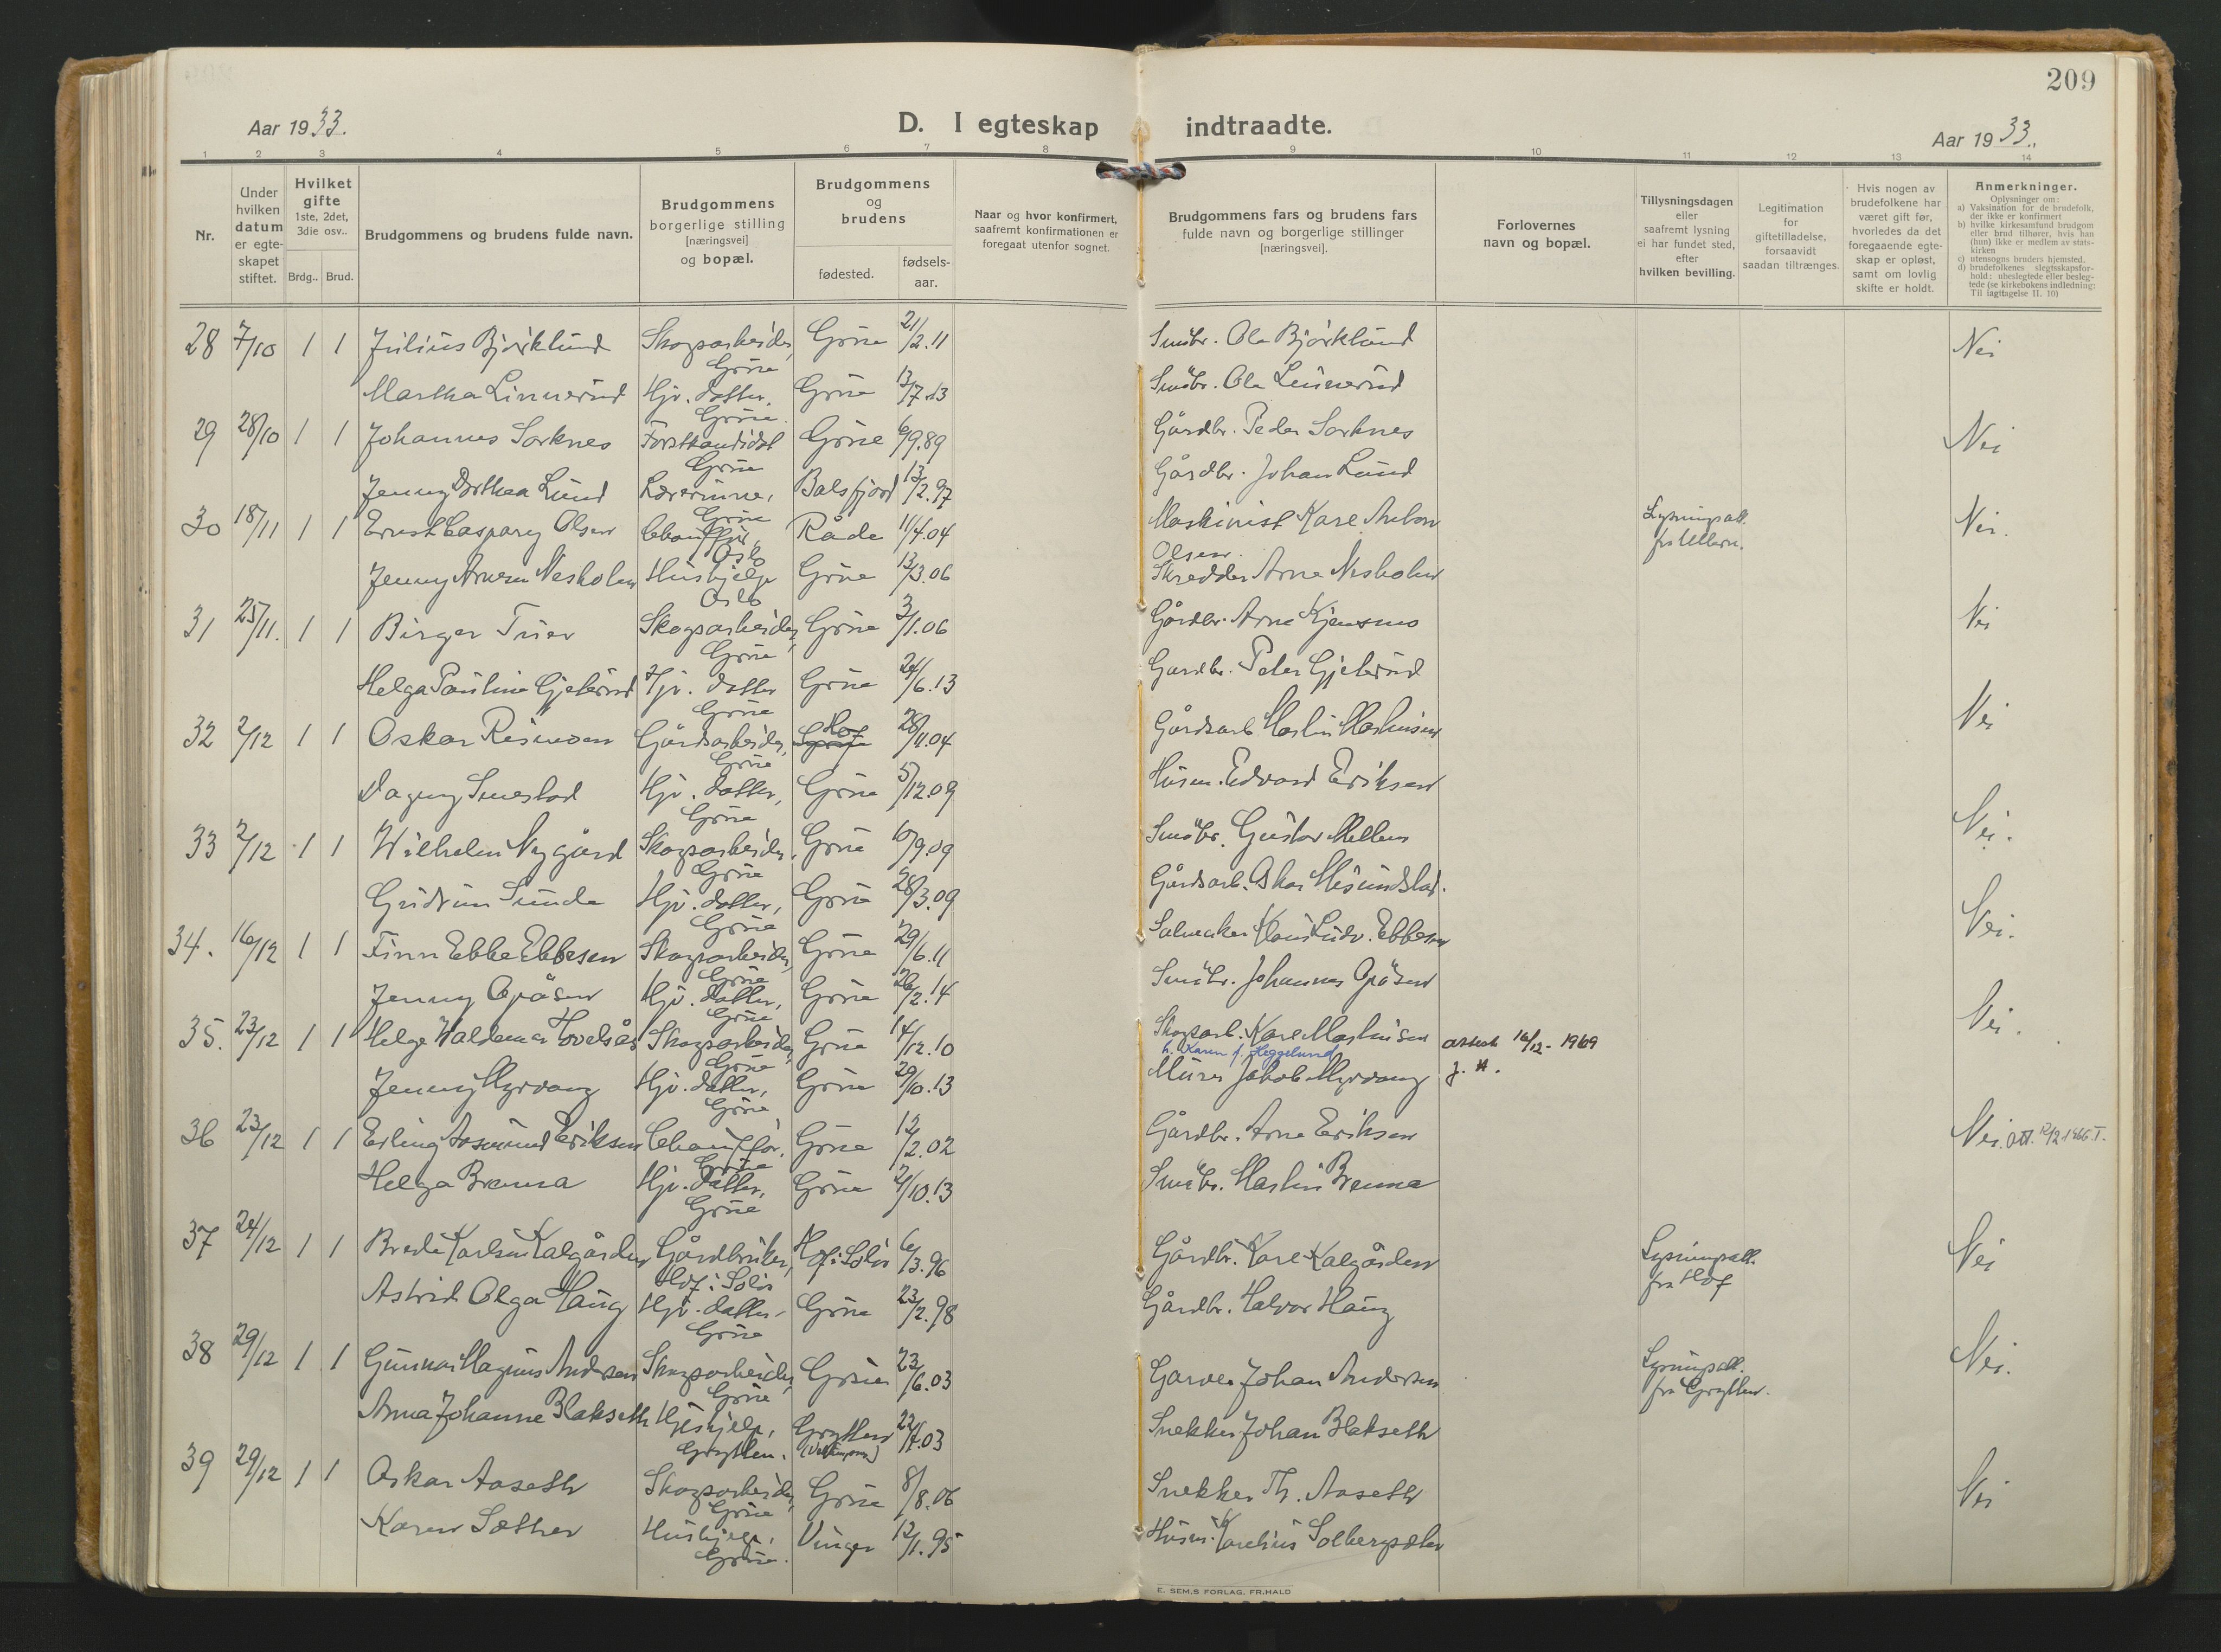 209
Aar 1933.
D. I egteskap indtraadte.
Aar 1933.
1 2 3 4 5 6 7 8 9 10 11 12 13 14
Nr.
Under hvilken datum er egte-skapet stiftet.
Hvilket gifte
1ste, 2det, 3die osv..
Brdg.. Brud.
Brudgommens og brudens fulde navn.
Brudgommens borgerlige stilling [næringsvei] og bopæl.
Brudgommens og brudens
fødested.
fødsels-aar.
Naar og hvor konfirmert, saafremt konfirmationen er foregaat utenfor sognet.
Brudgommens fars og brudens fars fulde navn og borgerlige stillinger [næringsvei].
Forlovernes navn og bopæl.
Tillysningsdagen eller saafremt lysning ei har fundet sted, efter hvilken bevilling.
Legitimation for giftetilladelse, forsaavidt saadan tiltrænges.
Hvis nogen av brudefolkene har været gift før, hvorledes da det foregaaende egte-skap er opløst, samt om lovlig skifte er holdt.
Anmerkninger.
Oplysninger om:
a) Vaksination for de brudefolk, der ikke er konfirmert
b) hvilke kirkesamfund brudgom eller brud tilhører, hvis han (hun) ikke er medlem av stats-kirken
c) utensogns bruders hjemsted.
d) brudefolkenes slegtsskapsfor-hold: ubeslegtede eller besleg-tede (se kirkebokens indledning: Til iagttagelse II. 10)
28 7/10 1 1 Julius Bjørklund Skogsarbeider, Grue Grue 21/2.11 Småbr. Ole Bjørklund Nei
Martha Linnerud Hjv. datter, Grue Grue 13/7.13 Småbr. Ole Linnerud
29 28/10 1 1 Johannes Sorknes Forstkandidat Grue Grue 6/9.89 Gårdbr. Peder Sorknes Nei
Jenny Dorthea Lund Lærerinne, Grue Balsfjord 13/2.97 Gårdbr. Johan Lund
30 18/11 1 1 Ernst Caspary Olsen Chauffør, Oslo Råde 11/4.04 Maskinist Karl Anton Olsen Lysningsatt. fra Ullern. Nei.
Jenny Arnesen Nesholen Hushjelp Oslo Grue 13/3.06 Skredder Arne Nesholen
31 25/11. 1 1 Birger Tuer Skogsarbeider, Grue Grue 3/1.06 Gårdbr. Arne Kjensmo Nei
Helga Pauline Gjeterud Hjv. datter Grue Grue 24/6.13 Gardbr. Peter Gjeterud
32 2/12 1 1 Oskar Rismoen Gårdsarbeider, Grue Hof 28/11.04 Gårdsarb. Martin Martinsen Nei
Dagny Smestad Hjv. datter, Grue Grue 5/12.09 Husm. Edvard Eriksen
33 2/12 1 1 Wilhelm Nygård Skogsarbeider, Grue Grue 10/9.09 Småbr. Gustav Mellem Nei.
Gudrun Sunde Hjv. datter, Grue Grue 28/3.09 Gårdsarb. Oskar
34. 16/12 1 1 Finn Ebbe Ebbesen Skogsarbeider, Grue Grue 29/6.11 Salmaker Hans Ludv. Ebbesen Nei.
Jenny Opåsen Hjv. datter, Grue Grue 26/2.14 Småbr. Johannes Opåsen
35. 23/12 1 1 Helge Waldemar Hovelsås Skogsarbeider, Grue Grue 14/12.10 Skogsarb. Karl Martinsen attest 16/12 - 1969 Nei.
h. Karen f. Heggelund
Jenny Myrvang Hjv. datter, Grue Grue 29/10.13 Murer Jakob Myrvang J. H.
36 23/12 1 1 Erling Asmund Eriksen Chauffør, Grue Grue 12/2.02 Gårdbr. Arne Eriksen Nei. att. 12/2 1966 T.
Helga Brenna Hjv. datter, Grue Grue 2/10.13 Småbr. Martin Brenna
37 24/12 1 1 Brede Karlsen Kalgården Gårdbruker, Hof i Solør Hof i Solør 6/3.96 Gårdbr. Karl Kalgården Lysningsatt. fra Hof Nei
Astrid Olga Haug Hjv. datter Grue Grue 23/2.98 Gårdbr. Halvor Haug
38 29/12 1 1 Gunnar Magnus Andersen Skogsarbeider, Grue Grue 23/6.03 Garver Johan Andersen Lysningsatt. fra Grytten. Nei.
Anna Johanne Blakseth Hushjelp, Grytten. Grytten 22/4.03 Snekker Johan Blakseth
39 29/12 1 1 Oskar Aaseth Skogsarbeider, Grue Grue 8/8.06 Snekker Th. Aaseth Nei
Karen Sæther Hushjelp, Grue. Vinger 12/1.95 Husm. Karelius Solbergsæter
E. SEM,S FORLAG, FR.HALD